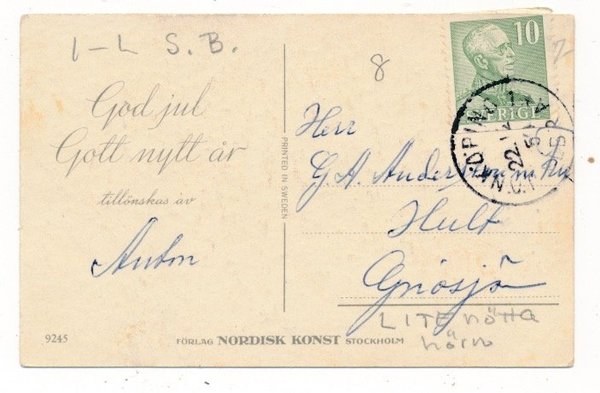 1-L S.B.
8
God jul
Gott nytt år
tillönskas av
Anton
PRINTED IN SWEDEN
10
SVERIGE
22
Herr
G.A. Andersson m. fru
Hult
Gnosjö
LITE nötta
hörn
9245
FÖRLAG NORDISK KONST STOCKHOLM